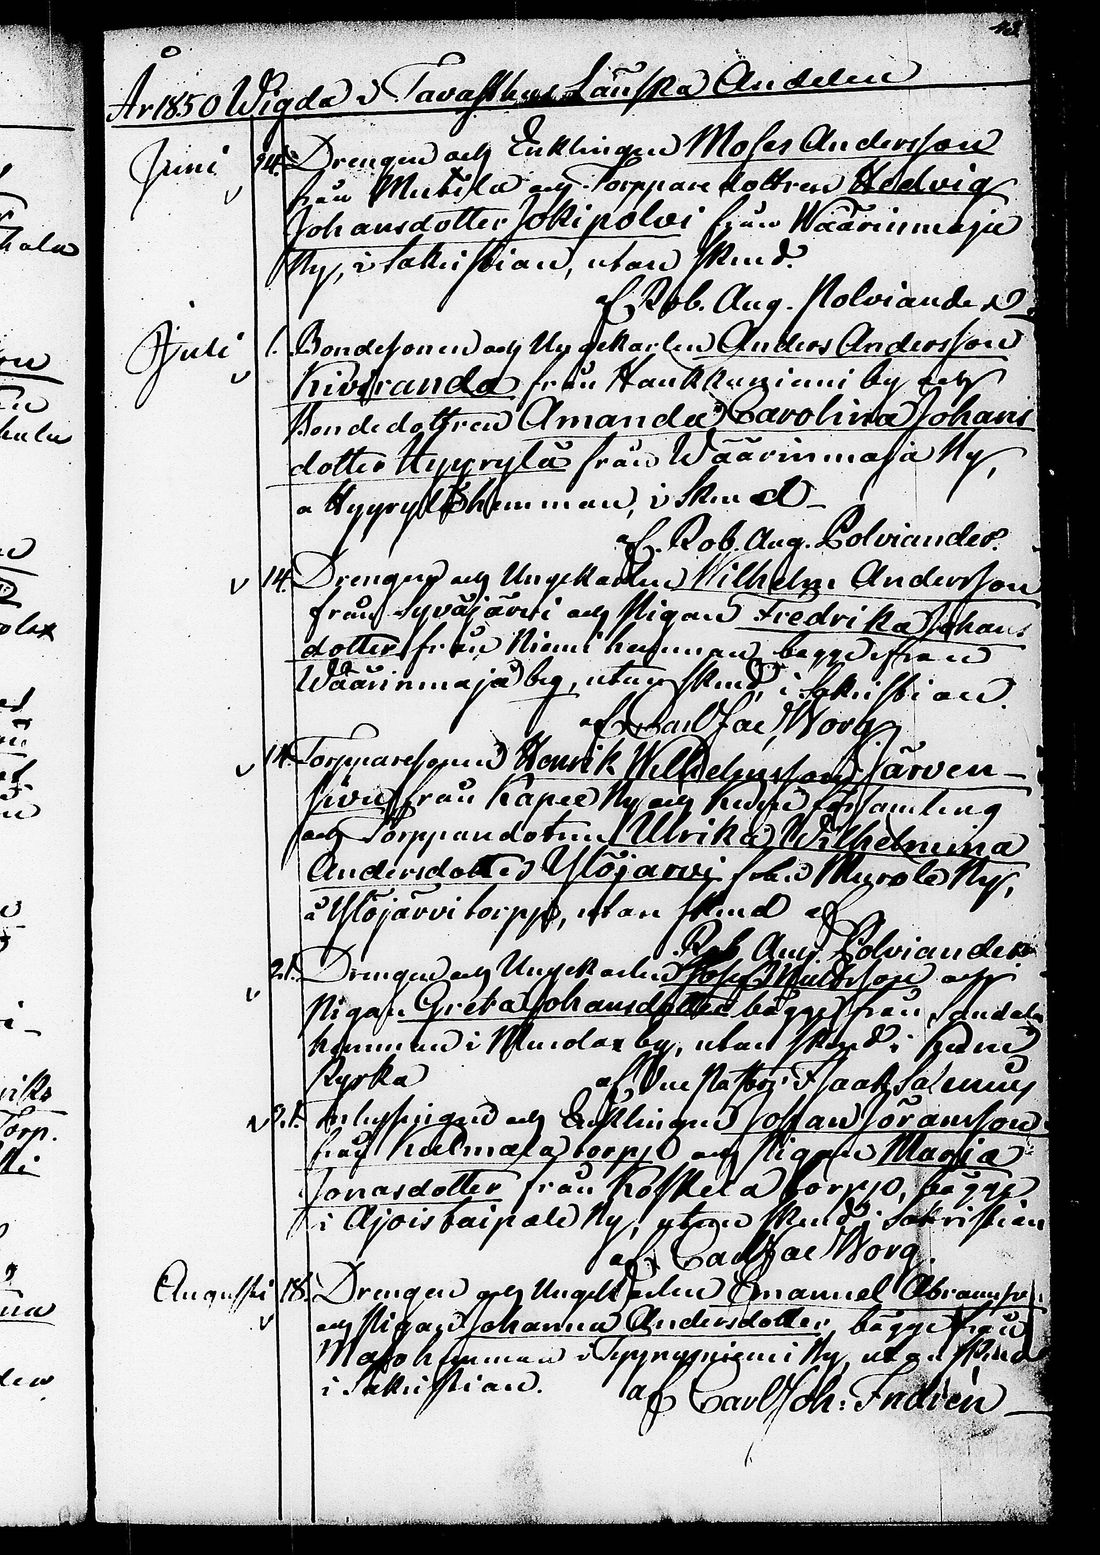 År 1850 Wigda i Tavastehus Länska Andelen
Juni 24. Drengen och Enklingen Moses Andersson
från Mutila och Torpparedottren Hedvig
Johansdotter Jokipolvi från Wäärinmaja
By, i Sakristian, utan skrud.
af Rob. Aug. Polviander
Juli 1. Bondesonen och Ungekarlen Anders Andersson
Kiviranda från Haukkuniemi by och
Bondedottren Amanda Carolina Johans
dotter Hyyrylä från Wäärinmaja By,
a Hyyrylä hemman, i skrud
af Rob. Aug. Polviander.
14. Drengen och Ungekarlen Wilhelm Andersson
från Syväjärvi och Pigan Fredrika Johans
dotter från Niemi hemman, begge från
Wäärinmaja by, utan skrud, i Sakristian.
af Carl Jac. Borg
14. Torpparesonen Henrik Wilhelmsson Järven-
sivu från Kapee By och församling
och Torpparedottren Ulrika Wilhelmina
Andersdotter Ylöjärvi från Murole By,
å Ylöjärvi torpp, utan skrud af
Rob. Aug. Polviander
21. Drengen och Ungekarlen och
Pigan Greta Johansdotter bägge från
hemman i Murole by, utan skrud i
Kyrka af Isaak Salenius
21. och Enklingen Johan Göransson
från torpp och Pigan Maria
Jonasdotter från Koskela torpp, bägge
i Ajostaipale By, utan skrud i Sakristian
af Carl Jac. Borg.
Augusti 18. Drengen och Ungekarlen Emanuel Abramsson
och Pigan Johanna Andersdotter, bägge från
hemman i By, utan skrud
i Sakristian. af Carl Joh: Indrén